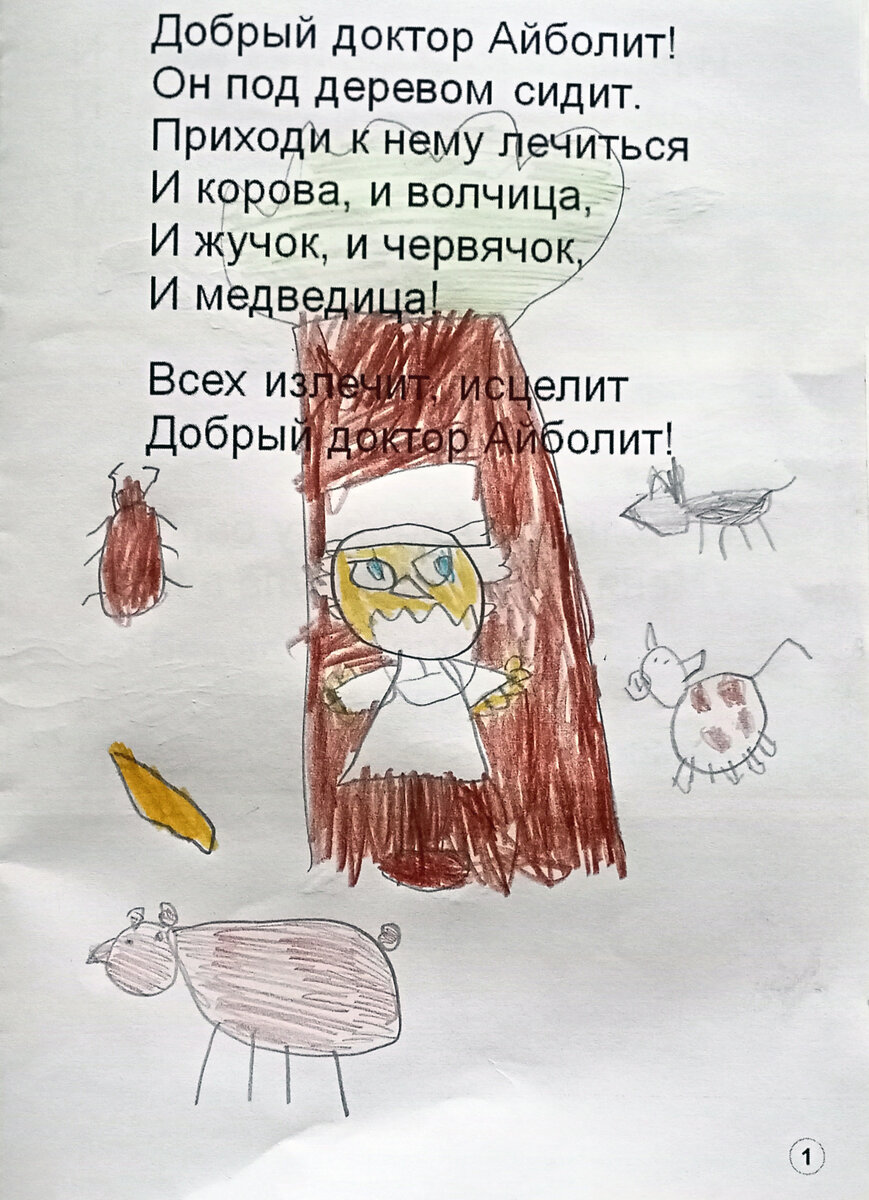 Добрый доктор Айболит!
Он под деревом сидит.
Приходи к нему лечиться
И корова, и волчица,
И жучок, и червячок,
И медведица!
Всех излечит, исцелит
Добрый доктор Айболит!
1